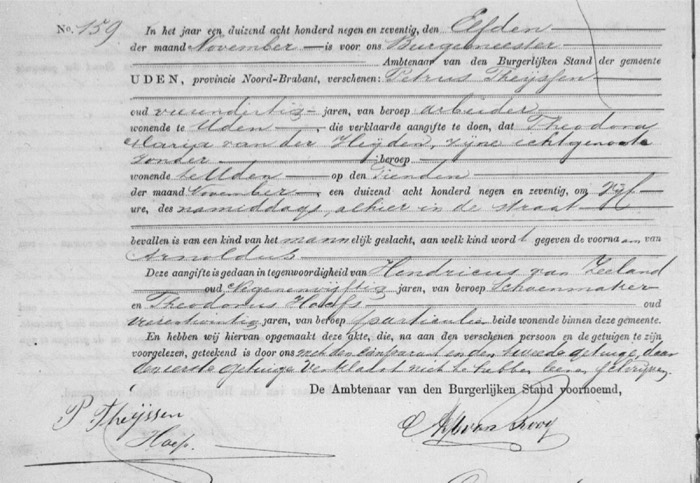 No. 159 In het jaar een duizend acht honderd negen en zeventig, den Elfden
der maand November is voor ons Burgemeester
Ambtenaar van den Burgerlijken Stand der gemeente
UDEN, provincie Noord-Brabant, verschenen: Petrus Theijssen
oud vierendertig jaren, van beroep arbeider
wonende te Uden, die verklaarde aangifte te doen, dat Theodora
Maria van der Heijden, zijne echtgenoote
zonder beroep
wonende te Uden op den Tienden
der maand November, een duizend acht honderd negen en zeventig, om vijf
ure, des namiddags, alhier in de straat
bevallen is van een kind van het mannelijk geslacht, aan welk kind wordt gegeven de voornaam van
Arnoldus
Deze aangifte is gedaan in tegenwoordigheid van Hendricus van Zeeland
oud Negenenvijftig jaren, van beroep Schoenmaker
en Theodorus oud
jaren, van beroep particulier beide wonende binnen deze gemeente.
En hebben wij hiervan opgemaakt deze akte, die, na aan den verschenen persoon en de getuigen te zijn
voorgelezen, geteekend is door ons met den comparant en den tweede getuige, daar
den eerste getuige verklaart niet te hebben leeren schrijven.
De Ambtenaar van den Burgerlijken Stand voornoemd,
P. Theijssen
van Rooij